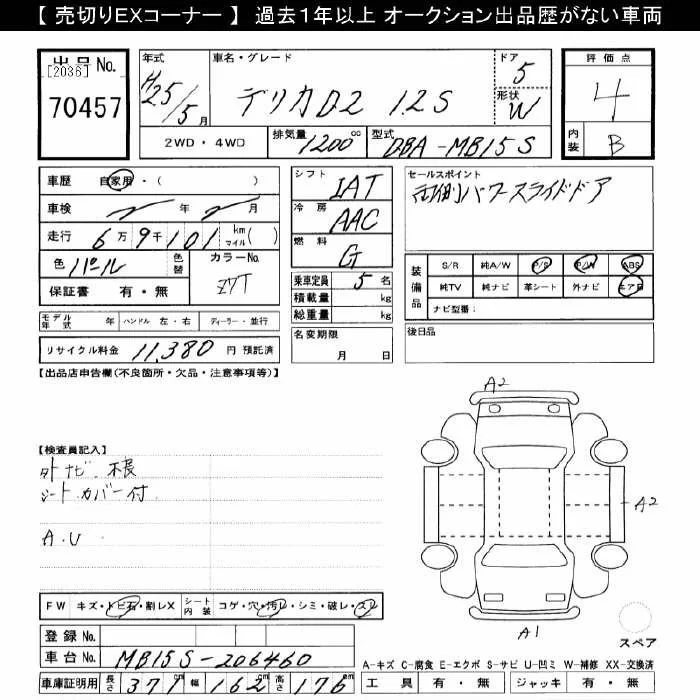 【 売切りEXコーナー 】 過去1年以上 オークション出品歴がない車両
出品 No.
[2036]
70457
年式
H25/5月
車名・グレード
デリカD2 1.2S
ドア
5
形状
W
2WD・4WD
排気量 1200cc
型式 DBA-MB15S
評価点
4
内装
B
車歴 自家用・( )
車検 年 月
走行 6万9千101 km マイル( )
色 パール
色替
カラーNo.
Z7T
保証書 有・無
シフト
IAT
冷房
AAC
燃料
G
乗車定員 5名
積載量 kg
総重量 kg
名変期限
月 日
セールスポイント
パワースライドドア
装備品
S/R 純A/W P/S P/W ABS
純TV 純ナビ 革シート 外ナビ エアB
ナビ型番:
後日品
モデル年式 年 ハンドル 左・右 ディーラー・並行
リサイクル料金 11,380 円 預託済
【出品店申告欄(不良箇所・欠品・注意事項等)】
【検査員記入】
外ナビ 不良
シートカバー付
A.U
A2
A2
A1
スペア
FW キズ・トビ石・割レX シート内装 コゲ・穴・汚レ・シミ・破レ・スレ
登録 No.
車台 No. MB15S-206460
車庫証明用 長さ 371cm 幅 162cm 高さ 176cm
A-キズ C-腐食 E-エクボ S-サビ U-凹ミ W-補修 XX-交換済
工具 有・無 ジャッキ 有・無